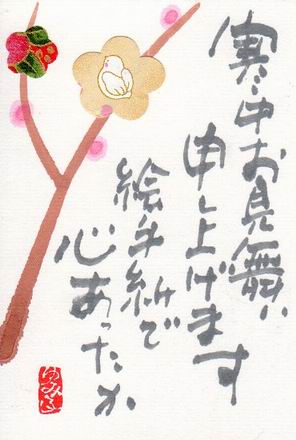 寒中お見舞い
申し上げます
絵手紙で
心あったか